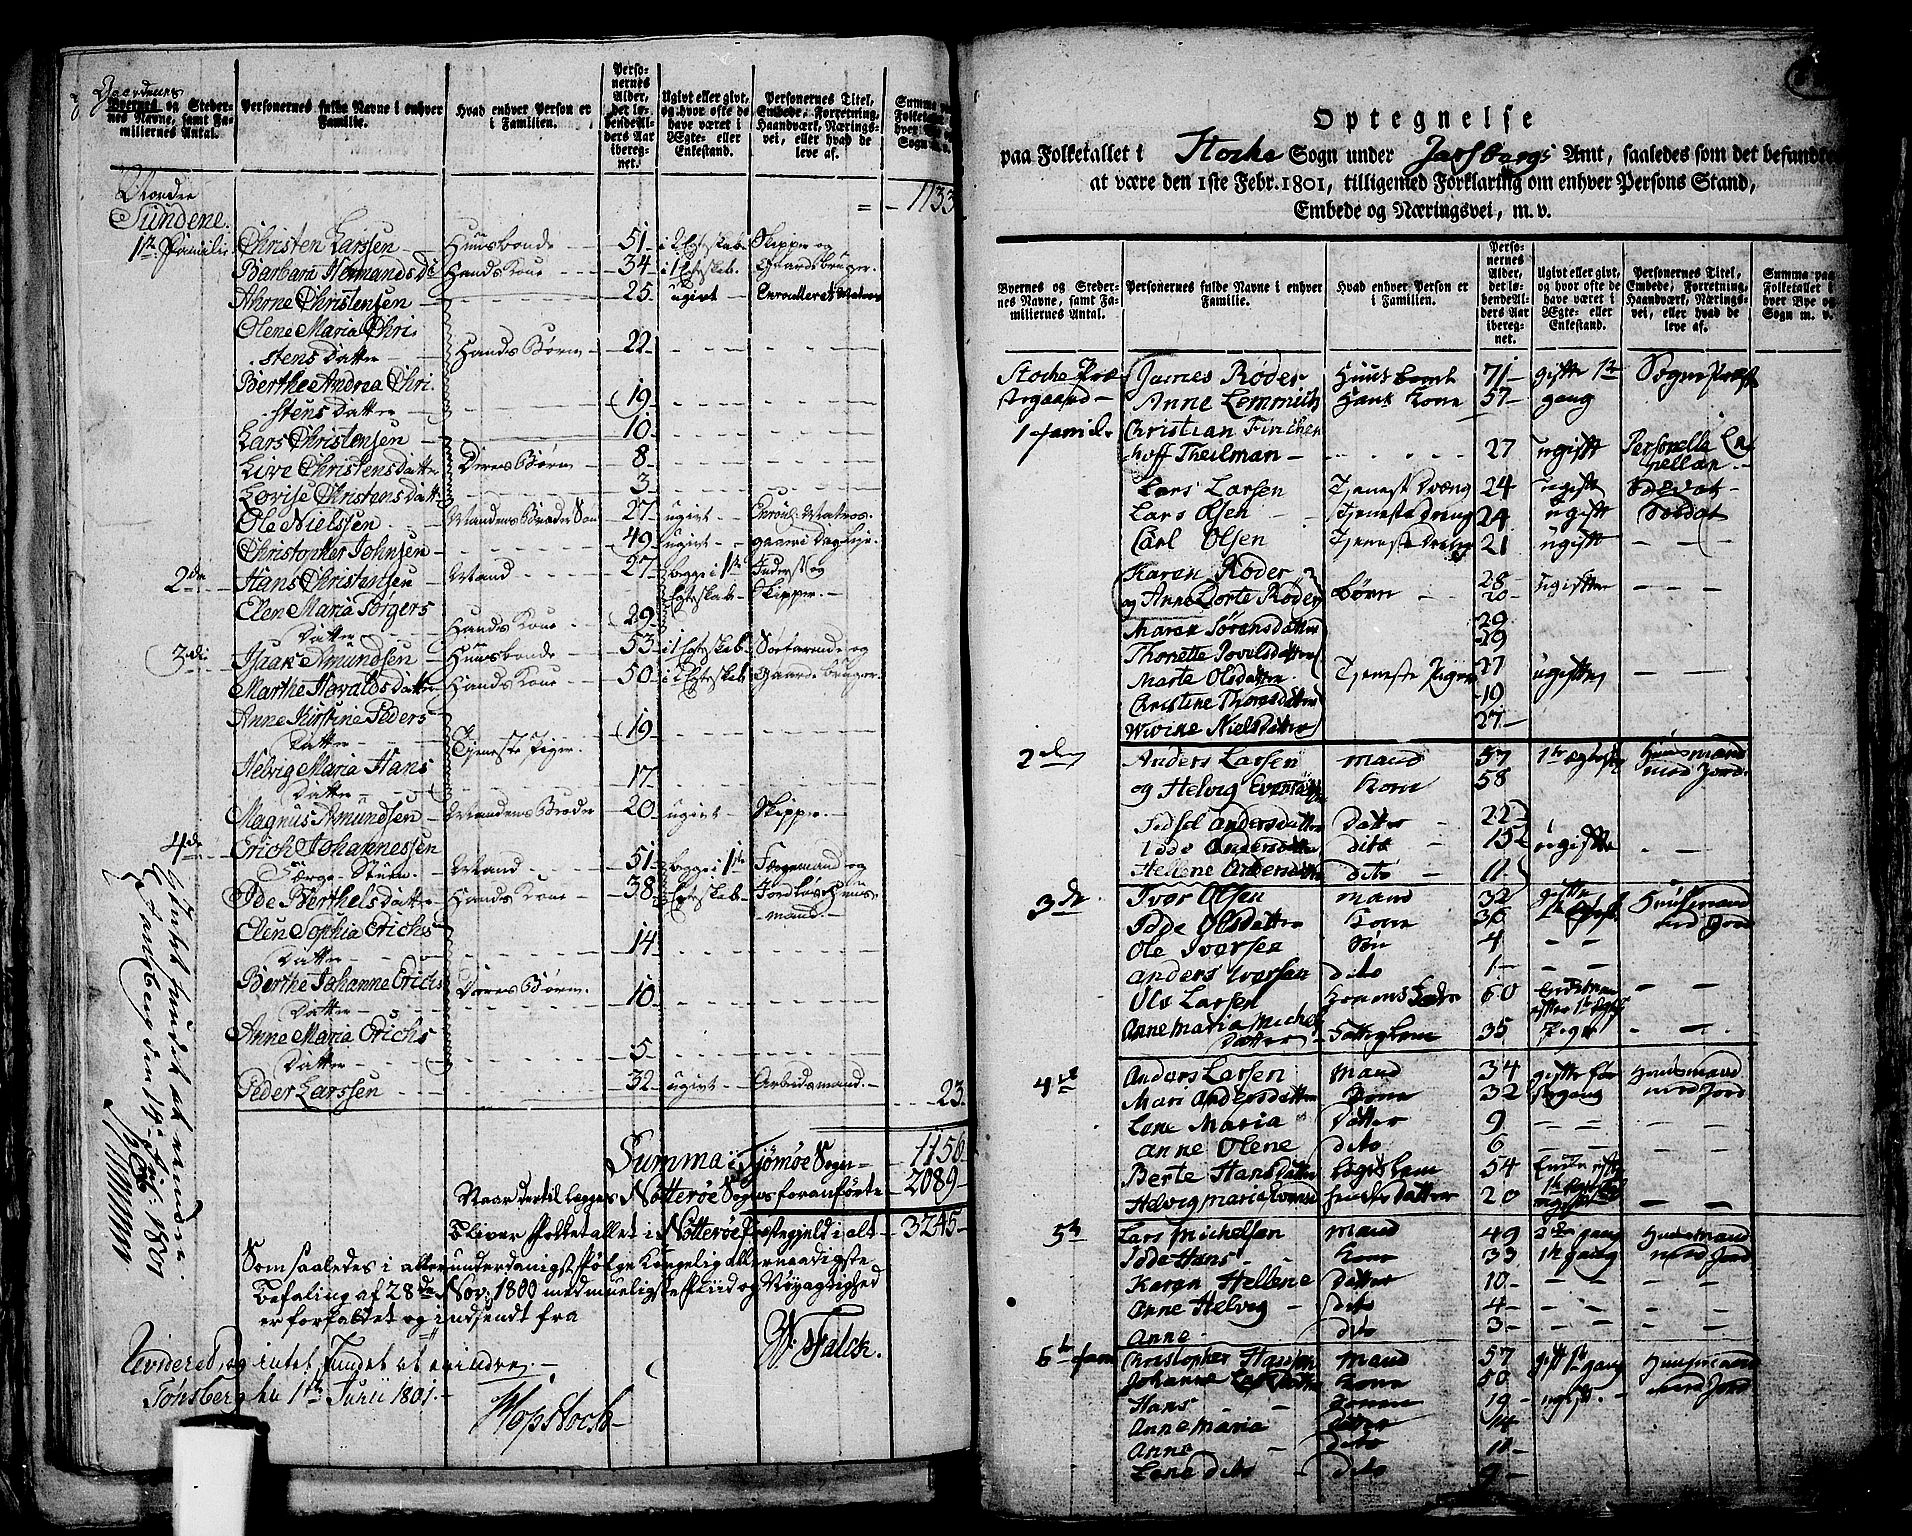 Gaardenes
Byernes og Steder-
nes Navne, samt Fa-
miliernes Antal.
Personernes fulde Navne i enhver
Familie.
Hvad enhver Person er
i Familien.
Perso-
nernes
Alder,
det lø-
bende Al-
ders Aar
ibereg-
net.
Ugivt eller givt,
og hvor ofte de
have været i
Ægte- eller
Enkestand.
Personernes Titel,
Embede, Forretning,
Haandværk, Nærings-
vei, eller hvad de
leve af.
Nordre
Sundene.
= 1133
1ste Familie Christen Larssen Huusbonde 51 i 2 Egteskab Skipper og
Barbara Hermands D. Hands Kone 34 i 1 Egteskab Gaardbruger.
Ahrne Christensen 25 ugivt Enroulleret Matros
Olene Maria Chri
stens Datter Hands Børn 22
Berthe Andrea Chri
stens Datter 19
Lars Christensen 10
Live Christensdatter Deres Børn 8
Lovise Christensdatter 3
Ole Nielssen Mandens Broder Søn 27 ugivt Enroul. Matros.
Christopher Johnsen 49 ugivt gaaer i Dagleje
2den Hans Christensen Mand 27 begge i 1ste Inderst og
Egteskab Skipper.
Elen Maria Jørgers
Datter Hands Kone 29
3die Isaak Amundsen Huusbonde 53 i 1 Egteskab Søefarende og
Marthe Nevaldsdatter Hands Kone 50 i 2 Egteskab Gaardbruger
Anne Kirstine Peders
Datter Tjeneste Piger. 19
Helvig Maria Hans
Datter 17
Magnus Amundsen Mandens Broder 20 ugivt Skipper.
4de Erich Johannessen
Færge-Stuen. Mand 51 begge i 1ste Færgemand og
Ide Berthelsdatter Hands Kone 38 Egteskab Jordløs Huus-
mand.
Elen Sophia Erichs
Datter 14
Berthe Johanne Erichs Deres Børn.
Datter 10
Anne Maria Erichs
Datter 5
Peder Larssen 32 ugivt Arbeidsmand. 23.
Summa i Tjømøe Sogn 1156
Naar dertil legges Nøtterøe Sogns foranførte 2089
bliver Folketallet i Nøtterøe Præstegjeld i alt 3245
Som saaledes i allerunderdanigst Følge Kongelig allernaadigste
Befaling af 28de Nov. 1800 med muelig Fliid og Nøyagtighed
er forfattet og indsendt fra
W. Falck.
Revideret, og intet fundet at erindre.
Tønsberg den 1ste Junii 1801.
Intet fundet at erindre.
Optegnelse
paa Folketallet i Stocke Sogn under Jarlsbergs Amt, saaledes som det befandtes
at være den 1ste Febr. 1801, tilligemed Forklaring om enhver Persons Stand,
Embede og Næringsvei, m. v.
Byernes og Steder-
nes Navne, samt Fa-
miliernes Antal.
Personernes fulde Navne i enhver
Familie.
Hvad enhver Person er
i Familien.
Perso-
nernes
Alder,
det lø-
bende Al-
ders Aar
ibereg-
net.
Ugivt eller givt,
og hvor ofte de
have været i
Ægte- eller
Enkestand.
Personernes Titel,
Embede, Forretning,
Haandværk, Nærings-
vei, eller hvad de
leve af.
Summa paa
Folketallet i
hver Bye og
Sogn m. v.
Stocke Præ- James Røder Huusbond 71 gifte 1ste Sogne Præst
stegaard Anne Lemmich Hans Kone 57 gang
1 familie Christian Finchen
hoff Theilman 27 ugift Personelle Ca
pellan
Lars Larsen Tjeneste Dreng 24 ugift Soldat
Lars Olsen Tjeneste Dreng 24 ugift Soldat
Carl Olsen Tjeneste Dreng 21 ugift
Karen Røder 28
og Anne Dorte Røder Børn 20 ugifte
Maren Sørensdatter 29
Thonette Povelsdatter 39
Marte Olsdatter Tjeneste Piger 27 ugifte
Christine Thorsdatter 19
Wivike Nielsdatter 27
2den Anders Larsen mand 57 1ste Huusmand
og Helvig Kone 58 med Jord
Sidsel Andersdatter Datter 22
Idde Andersdatter dito 15 ugifte
Hellene Andersdatter dito 11
3de Iver Olsen mand 32 gifte Huusmand
Idde Olsdatter Kone 36 med Jord
Ole Iversen Søn 4
Anders Iversen dito 1
Ole Larsen Konens Fader 60
Anne Maria Michels
datter Fattiglem 35 Pige
4de Anders Larsen mand 34 gifte før Huusmand
Mari Andersdatter Kone 32 ste gang med Jord
Lene Maria Datter 9
Anne Olene dito 6
Berte Hansdatter Logislem 54 Enke efter
Helvig Maria hendes Datter 20 ugift
5te Lars Michelsen mand 49 2den gang Huusmand
Idde Hans Kone 33 1ste gang med Jord
Karen Hellene Datter 10
Anne Helvig dito 4
Anne dito 3
6te fam Christopher Hansen mand 57 gift 1ste gang Huusmand
Johanne Larsdatter Kone 50 med Jord
Hans Sønnen 19 ugift
Anne Maria Datter 14
Anne dito 11
Lene dito dito 9